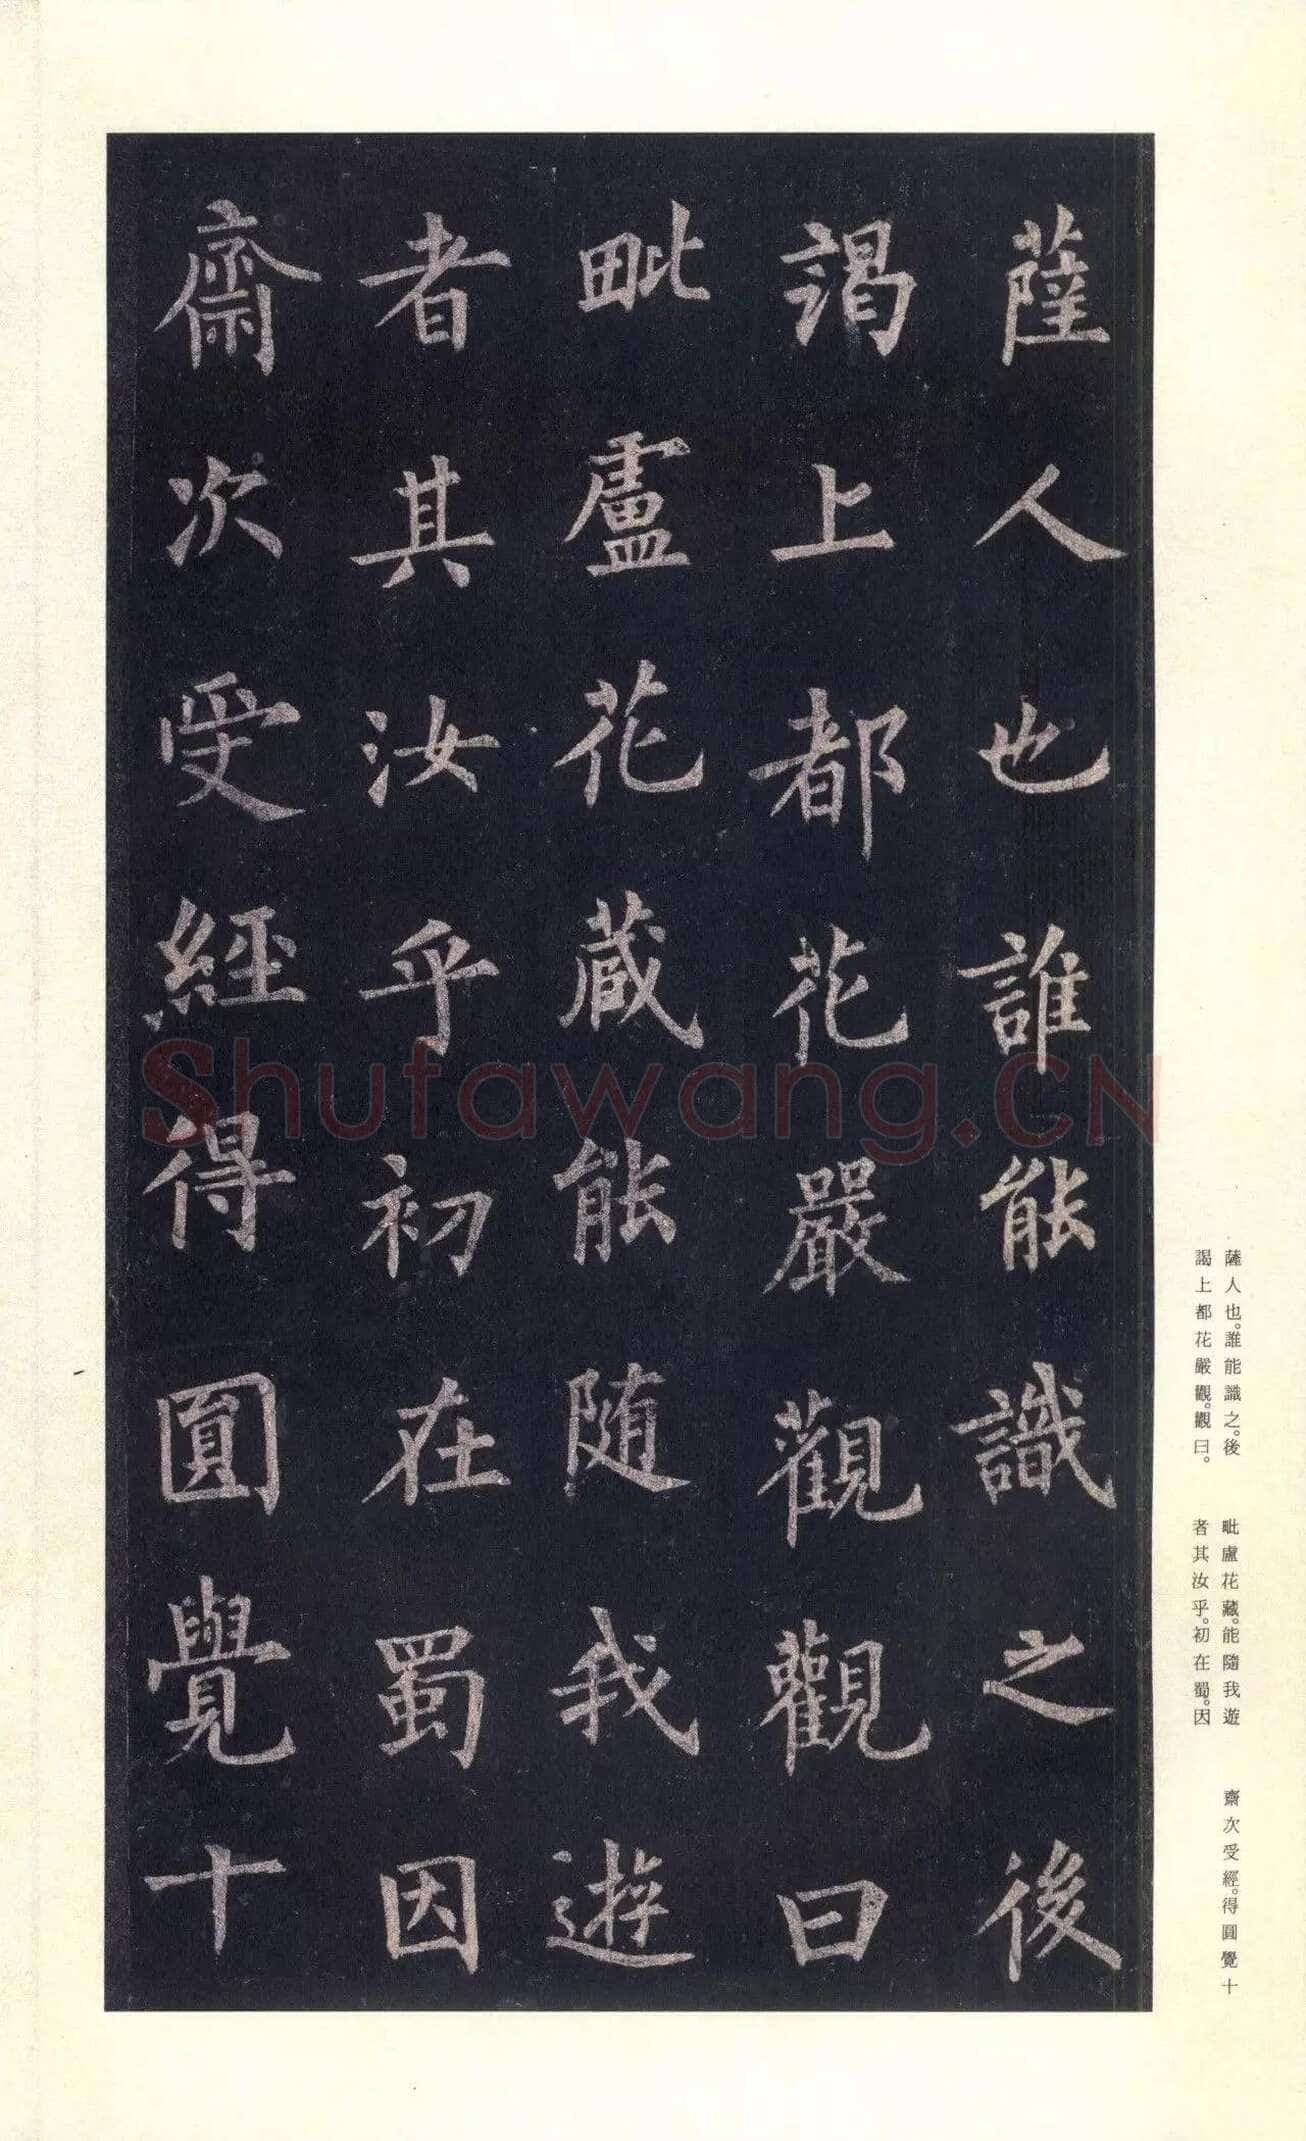 薩人也誰能識之後
謁上都花嚴觀觀曰
毗盧花蔵能随我遊
者其汝乎初在蜀因
齋次受經得圓覺十
薩人也。誰能識之。後
謁上都花嚴觀。觀曰。
毗盧花藏。能隨我遊
者其汝乎。初在蜀。因
齋次受經。得圓覺十
Shufawang.CN